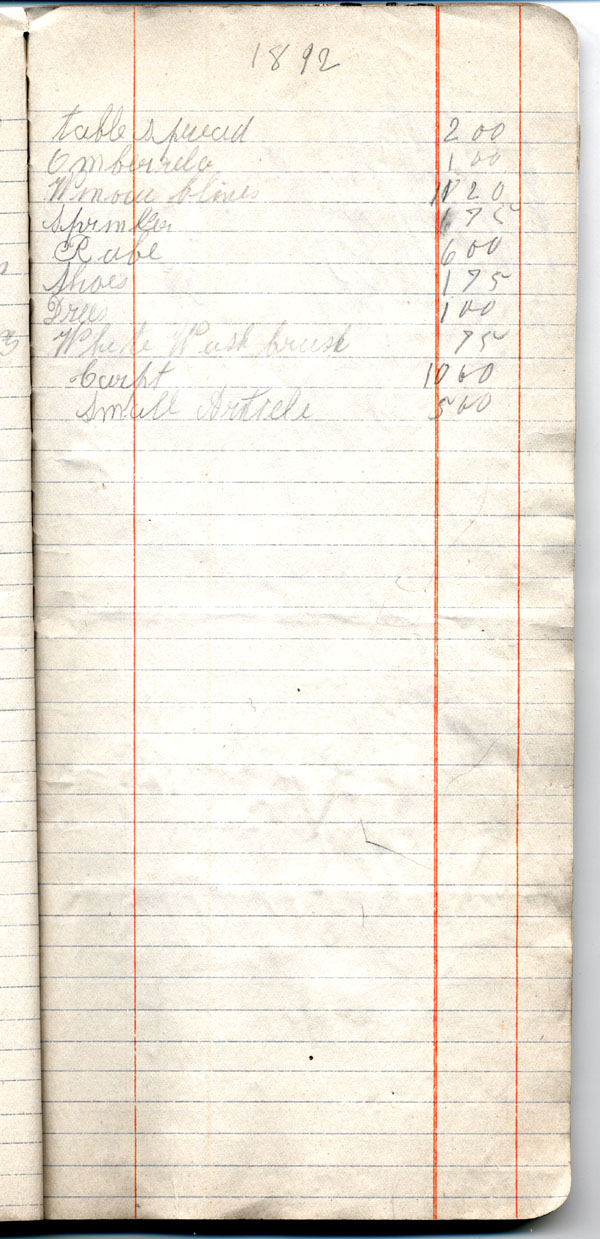 1892
table spread 2 00
Omberrela 1 00
Winow blines
Sprinkler 75
Robe 6 00
Shoes 1 75
Dress 1 00
White Wash brush 75
Carpt 10 60
Small Article 5 00